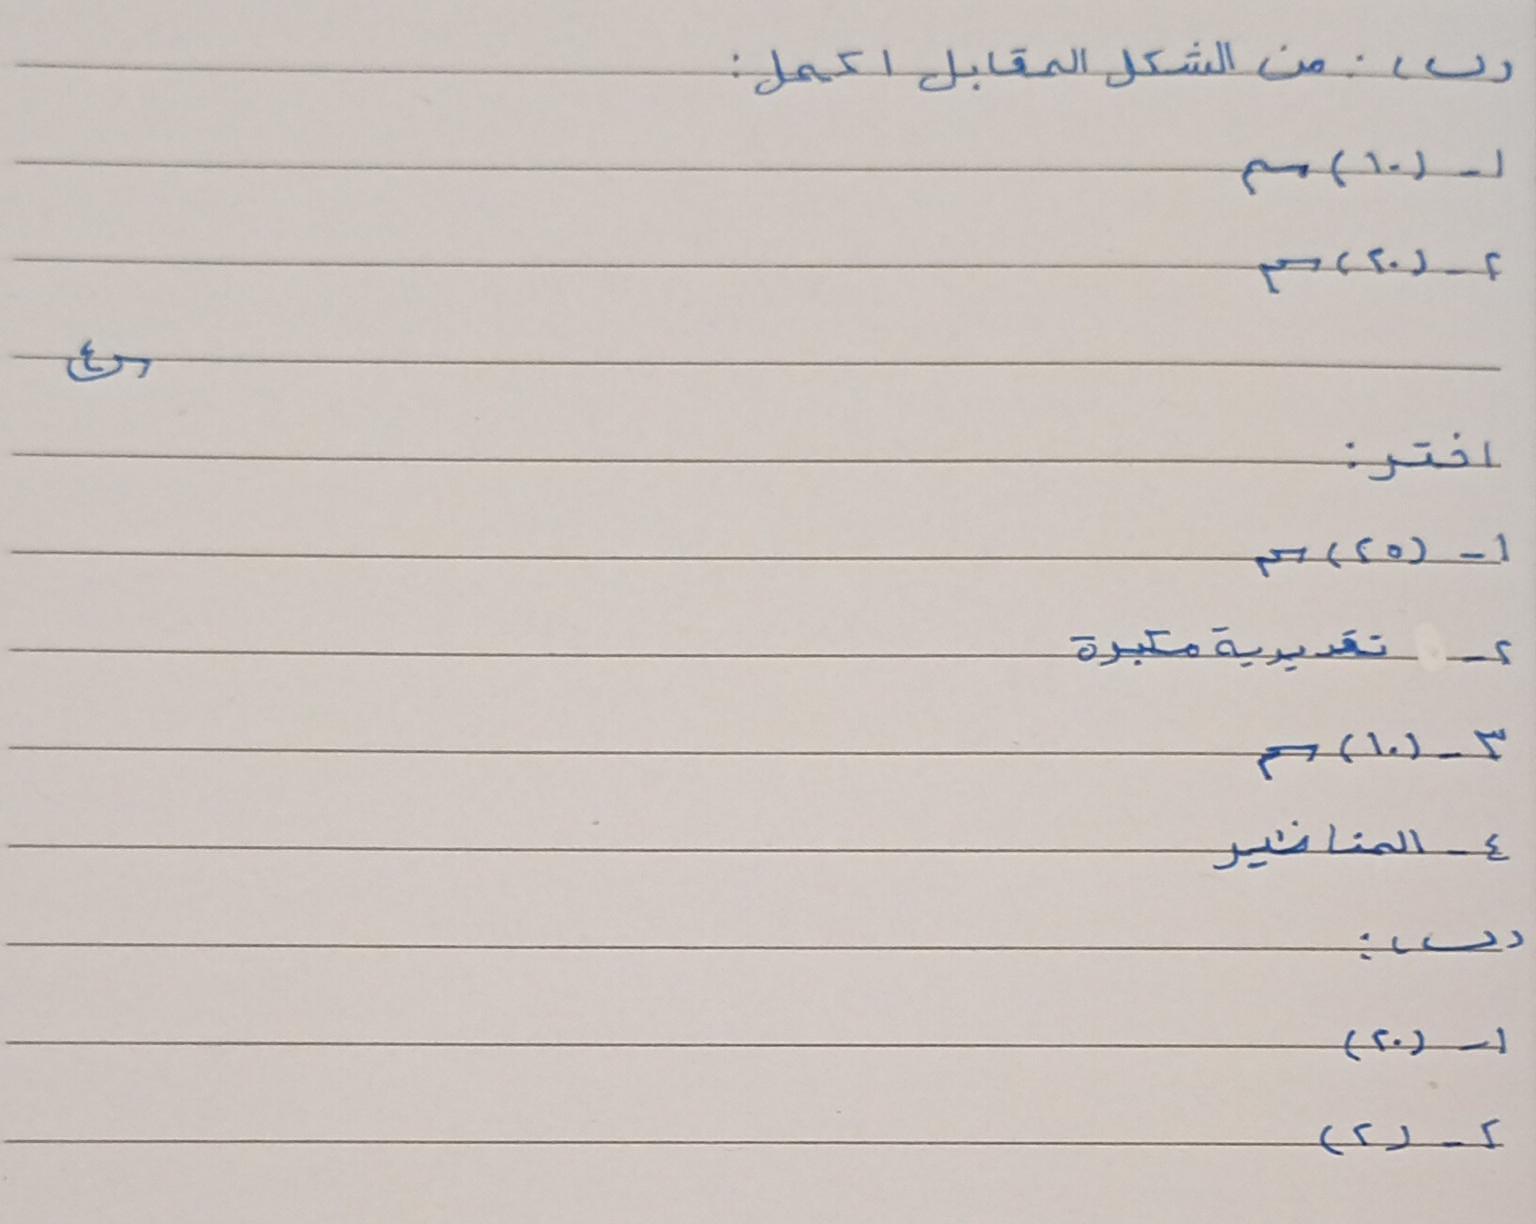 (ب) : من الشكل المقابل اكمل :
١- (١٠) سم
٢- (٢٠) سم
س٤
اختر :
١- (٢٥) سم
٢- تقديرية مكبرة
٣- (١٠) سم
٤- المناظير
(ب) :
١- (٢٠)
٢- (٢)